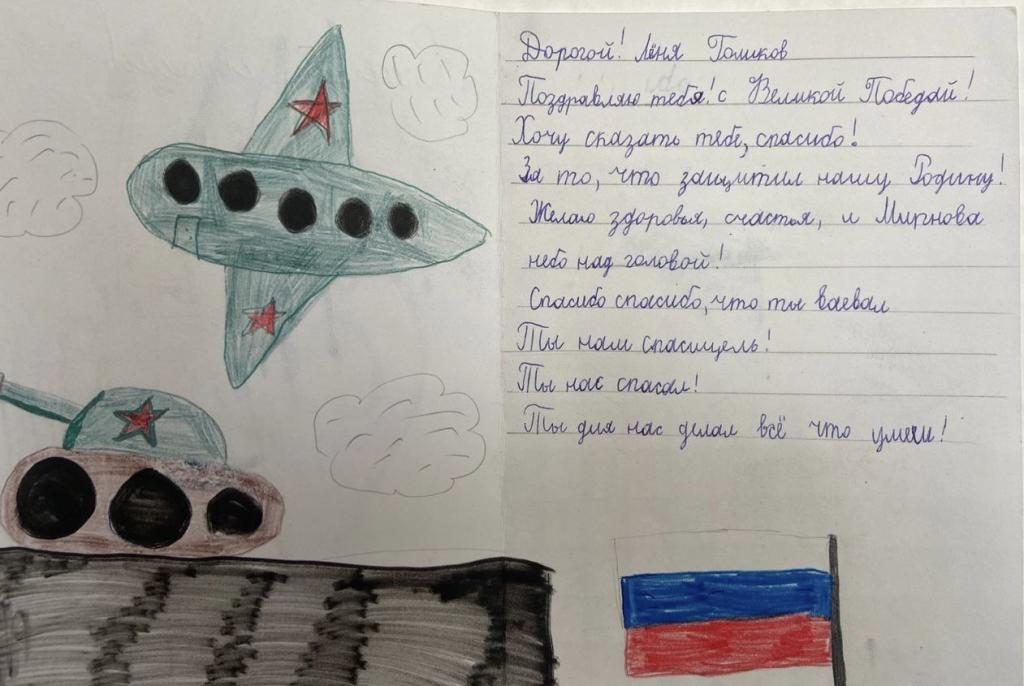 Дорогой! Лёня Голиков
Поздравляю тебя! с Великой Победой!
Хочу сказать тебе, спасибо!
За то, что защитил нашу Родину!
Желаю здоровья, счастья, и Мирнова
небо над головой!
Спасибо спасибо, что ты ваевал
Ты нам спасицель!
Ты нас спасал!
Ты для нас делал всё что умел!